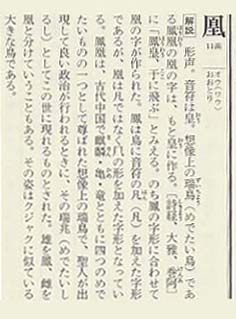 凰
11画
オウ(ワウ)
おおとり
解説 形声。音符は皇。想像上の瑞鳥(めでたい鳥)であ
る鳳凰の凰の字は、もと皇に作る。〔詩経、大雅、巻阿〕
に「鳳皇、于に飛ぶ」とみえる。のち鳳の字形に合わせて
凰の字が作られた。鳳は鳥に音符の凡(凡)を加えた字形
であるが、凰は凡ではなく几の形を加えた字形となってい
る。鳳凰は、古代中国で麒麟・亀・竜とともに四つのめで
たいものの一つとして尊ばれた想像上の瑞鳥で、聖人が出
現して良い政治が行われるときに、その瑞兆(めでたいし
るし)としてこの世に現れるものとされた。雄を鳳、雌を
凰と分けていうこともある。その姿はクジャクに似ている
大きな鳥である。